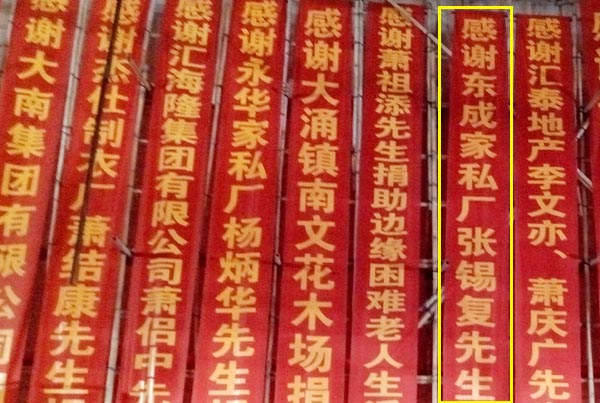 感谢大南集团有限公司
感谢杰仕制衣厂萧结康先生捐
感谢汇海隆集团有限公司萧侣中先
感谢永华家私厂杨炳华先生
感谢大涌镇南文花木场捐
感谢萧祖添先生捐助边缘困难老人生活
感谢东成家私厂张锡复先生
感谢汇泰地产李文亦、萧庆广先